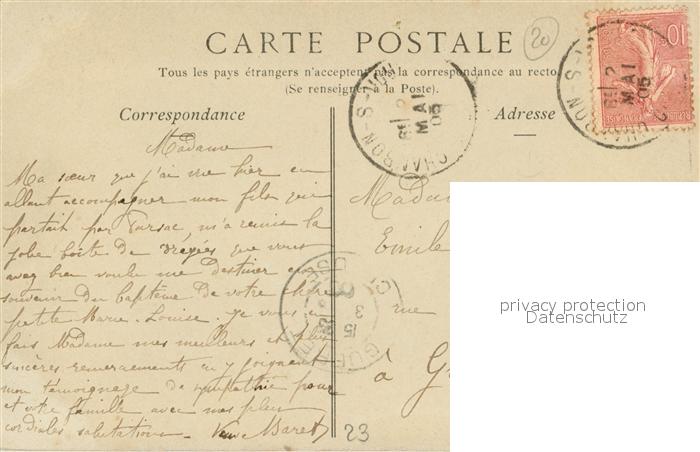 20
CARTE POSTALE
Tous les pays étrangers n'acceptent pas la correspondance au recto
(Se renseigner à la Poste).
Correspondance
Adresse
Madame
Ma sœur que j'ai vue hier en
allant accompagner mon fils qui
partait par Parsac, m'a remis la
jolie boîte de dragées que vous
avez bien voulu me destiner en
souvenir du baptême de votre chère
petite Marie-Louise. Je vous en
fais Madame mes meilleurs et plus
sincères remerciements en y joignant
mon témoignage de sympathie pour
et votre famille avec mes plus
cordiales salutations. Veuve Maret
23
Mada
Emile
rue
à G
CHAMBON-S-VOU
2
MAI
05
10
CHAMBON-S-V
2
MAI
05
GUÉRET
CREUSE
15
3
privacy protection
Datenschutz